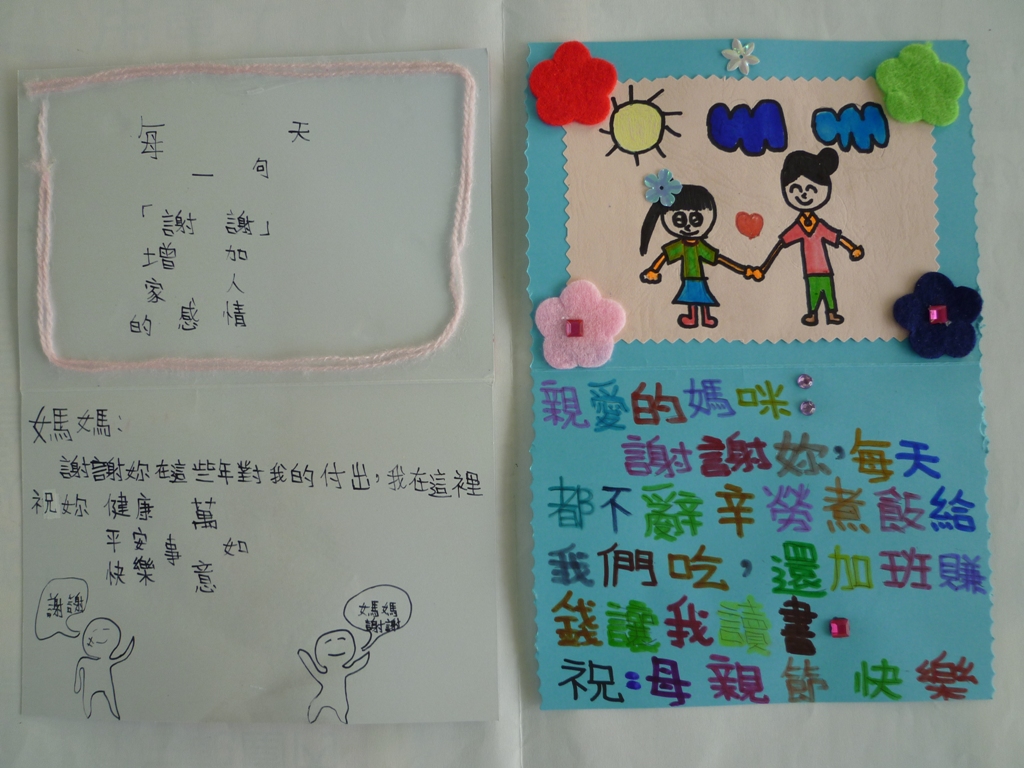 每天
一句
「謝謝」
增加
家人
的感情
媽媽：
謝謝妳在這些年對我的付出，我在這裡
祝妳 健康 萬
平安 事 如
快樂 意
謝謝
媽媽
謝謝
親愛的媽咪：
謝謝妳，每天
都不辭辛勞煮飯給
我們吃，還加班賺
錢讓我讀書
祝：母親節快樂